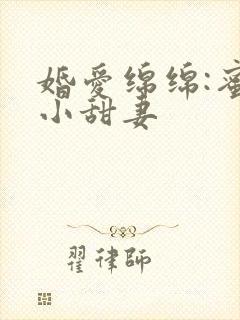 婚爱绵绵:蜜
小甜妻
翟律师